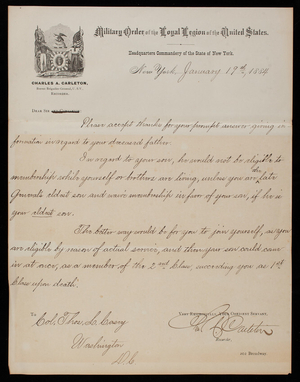 Military Order of the Loyal Legion of the United States.
Headquarters Commandery of the State of New York.
CHARLES A. CARLETON,
Recorder.
New York, January 19th, 1884
DEAR SIR
Please accept thanks for your prompt answer giving in-
formation in regard to your deceased father.
In regard to your son, he would not be eligible to
membership while yourself or brothers are living, unless you are the late
General's eldest son and waive membership in favor of your son, if he is
your eldest son.
The better way would be for you to join yourself, as you
are eligible by reason of actual service, and then your son could come
in at once, as a member of the 2nd Class, succeeding you as 1st
Class upon death.
YOUR OBEDIENT SERVANT,
Recorder.
To
Col. Thos. L. Casey
Washington
D.C.